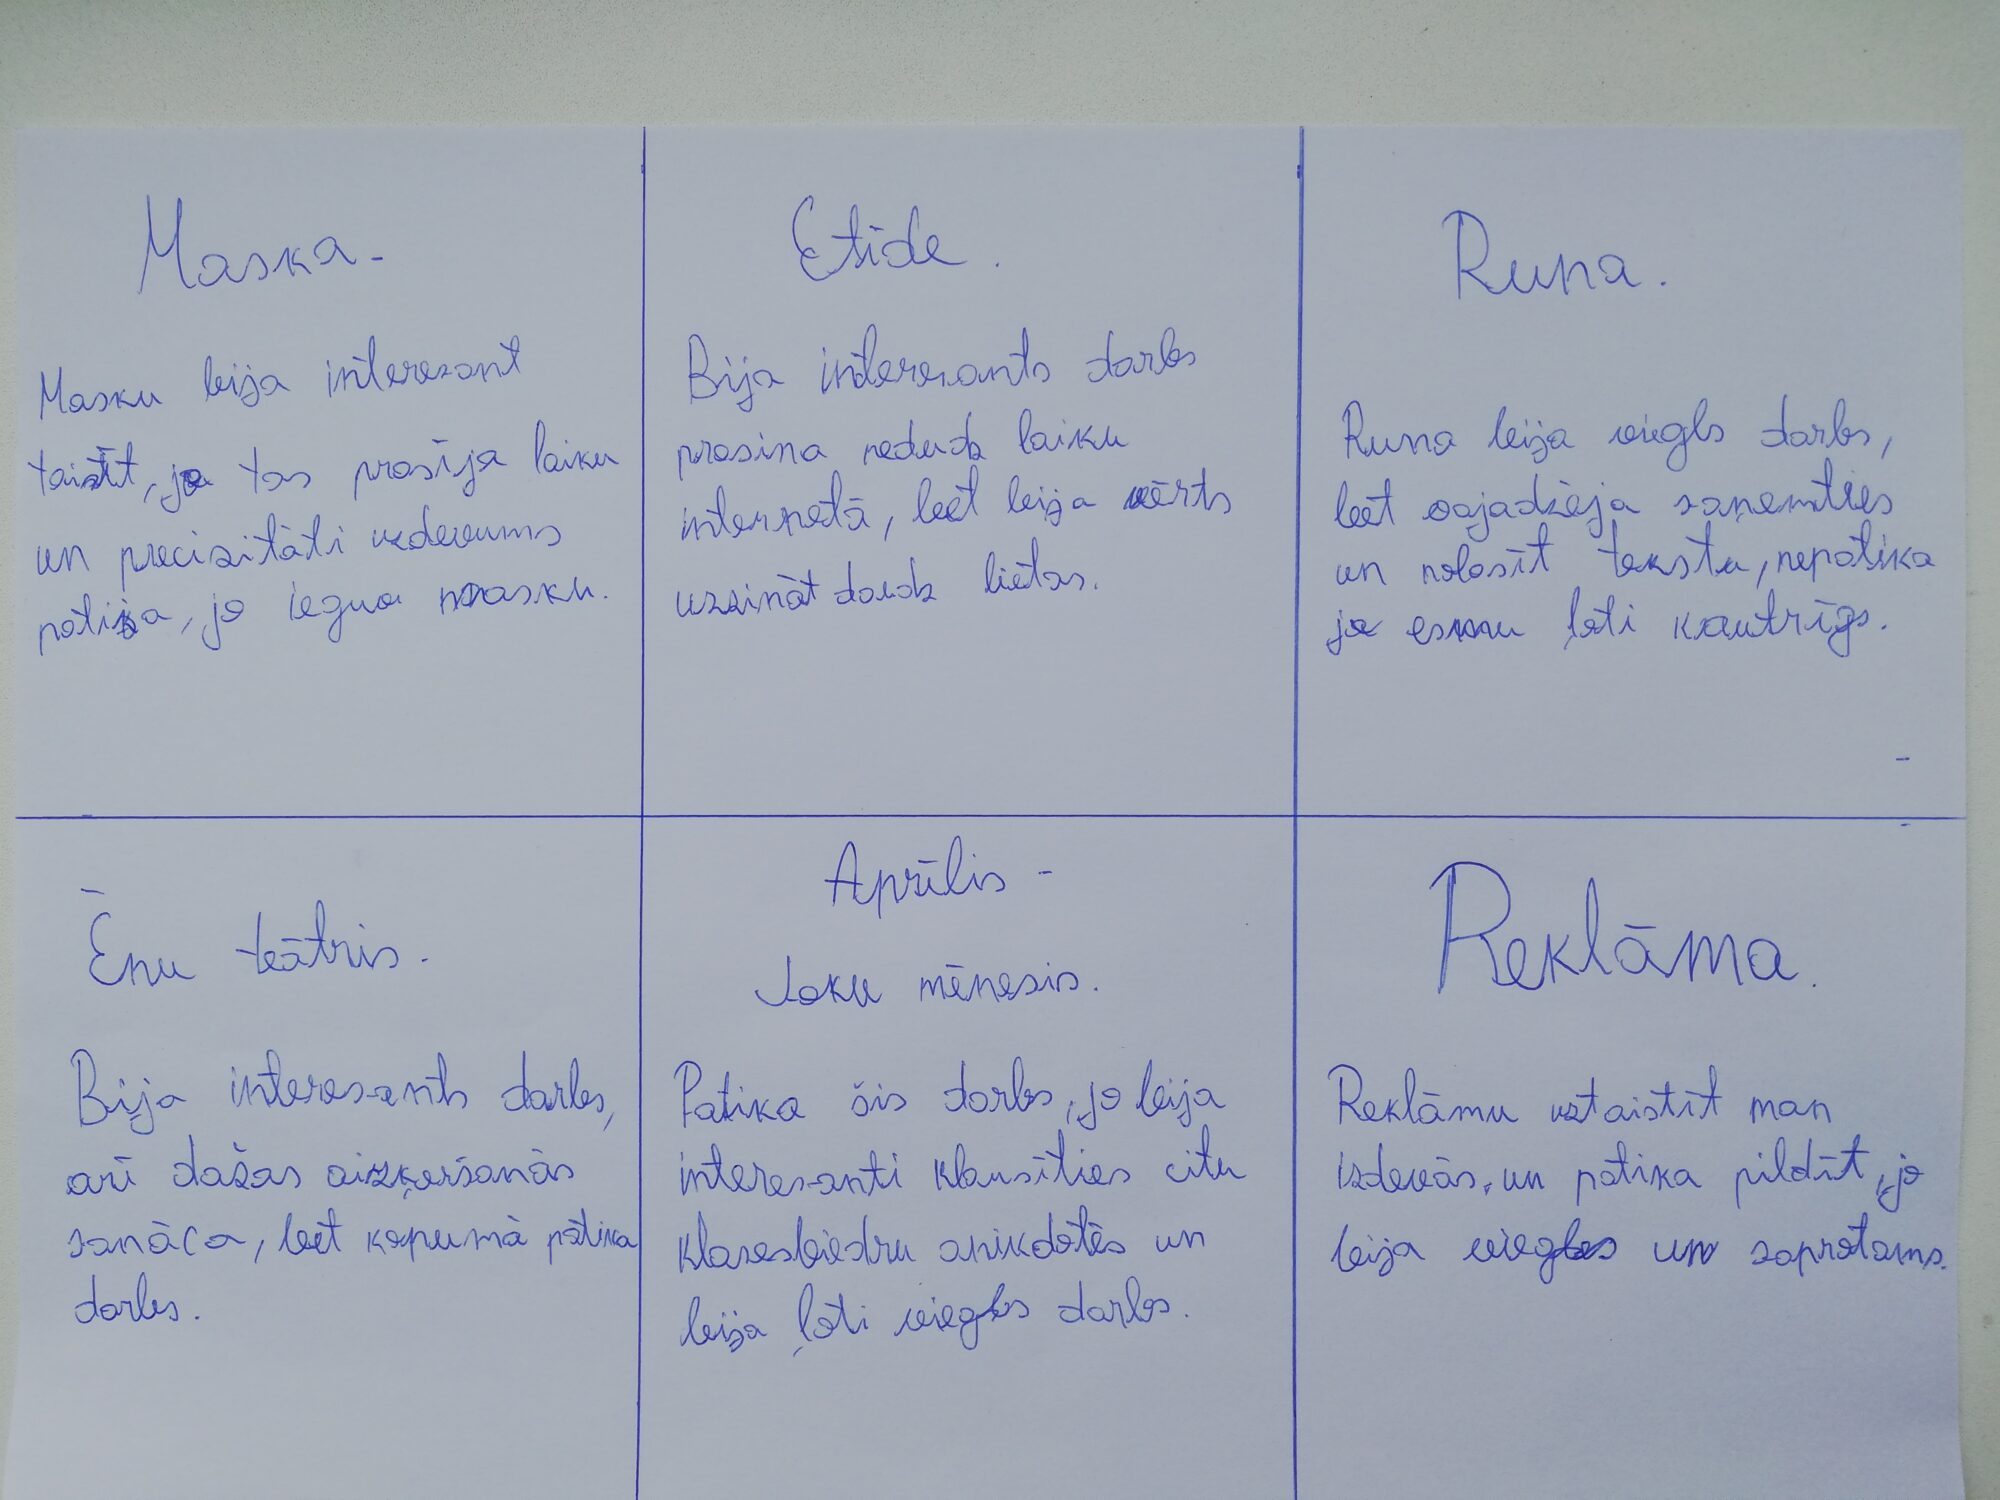 Maska.
Masku bija interesant
taisīt, jo tas prasīja laiku
un precizitāti uzdevums
patika, jo ieguva masku.
Etīde.
Bija interesants darbs
prasina nedudz laiku
internetā, bet bija vērts
uzzināt daudz lietas.
Runa.
Runa bija viegls darbs,
bet vajadzēja saņemties
un nolasīt tekstu, nepatika
jo esmu ļoti kautrīgs.
Ēnu teātris.
Bija interesants darbs,
arī dažas aizķeršanās
sanāca, bet kopumā patika
darbs.
Aprīlis -
Joku mēnesis.
Patika šis darbs, jo bija
interesanti klausīties citu
klasesbiedru anikdotēs un
bija ļoti viegls darbs.
Reklāma.
Reklāmu uztaistīt man
izdevās, un patika pildīt, jo
bija viegls un saprotams.